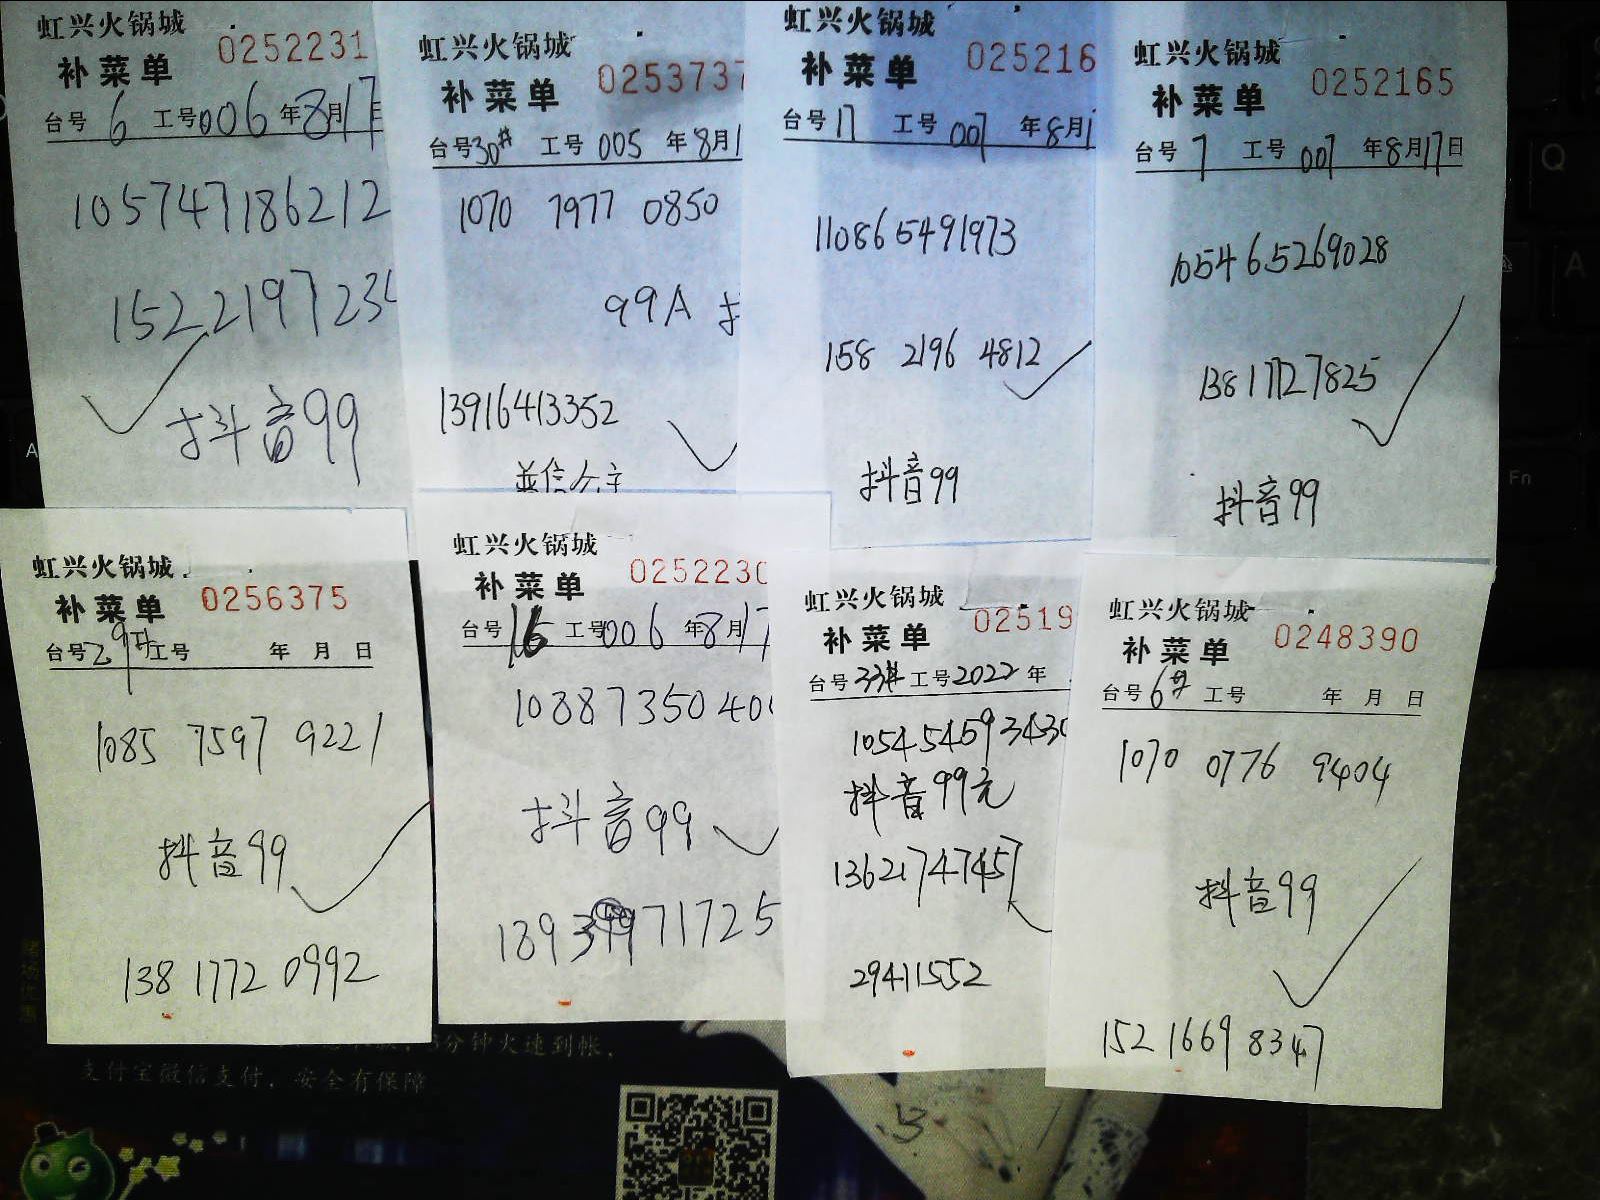 虹兴火锅城
补菜单 0252231
台号 6 工号 006 年 8月17日
105747186212
1522197235
抖音99
虹兴火锅城
补菜单 0253737
台号 30# 工号 005 年 8月1
1070 7977 0850
99A
13916413352
虹兴火锅城
补菜单 025216
台号 17 工号 007 年 8月1
110865491973
158 2196 4812
抖音99
虹兴火锅城
补菜单 0252165
台号 7 工号 007 年 8月17日
105465269028
13817727825
抖音99
虹兴火锅城
补菜单 0256375
台号 29 工号 年 月 日
1085 7597 9221
抖音99
138 1772 0992
虹兴火锅城
补菜单 0252230
台号 16 工号 006 年 8月17
10887350400
抖音99
1893971725
虹兴火锅城
补菜单 02519
台号 33# 工号 2022 年
10545459343
抖音99元
13621747457
29411552
虹兴火锅城
补菜单 0248390
台号 6 工号 年 月 日
1070 0776 9404
抖音99
152 1669 8347
分钟火速到帐,
支付宝微信支付,安全有保障